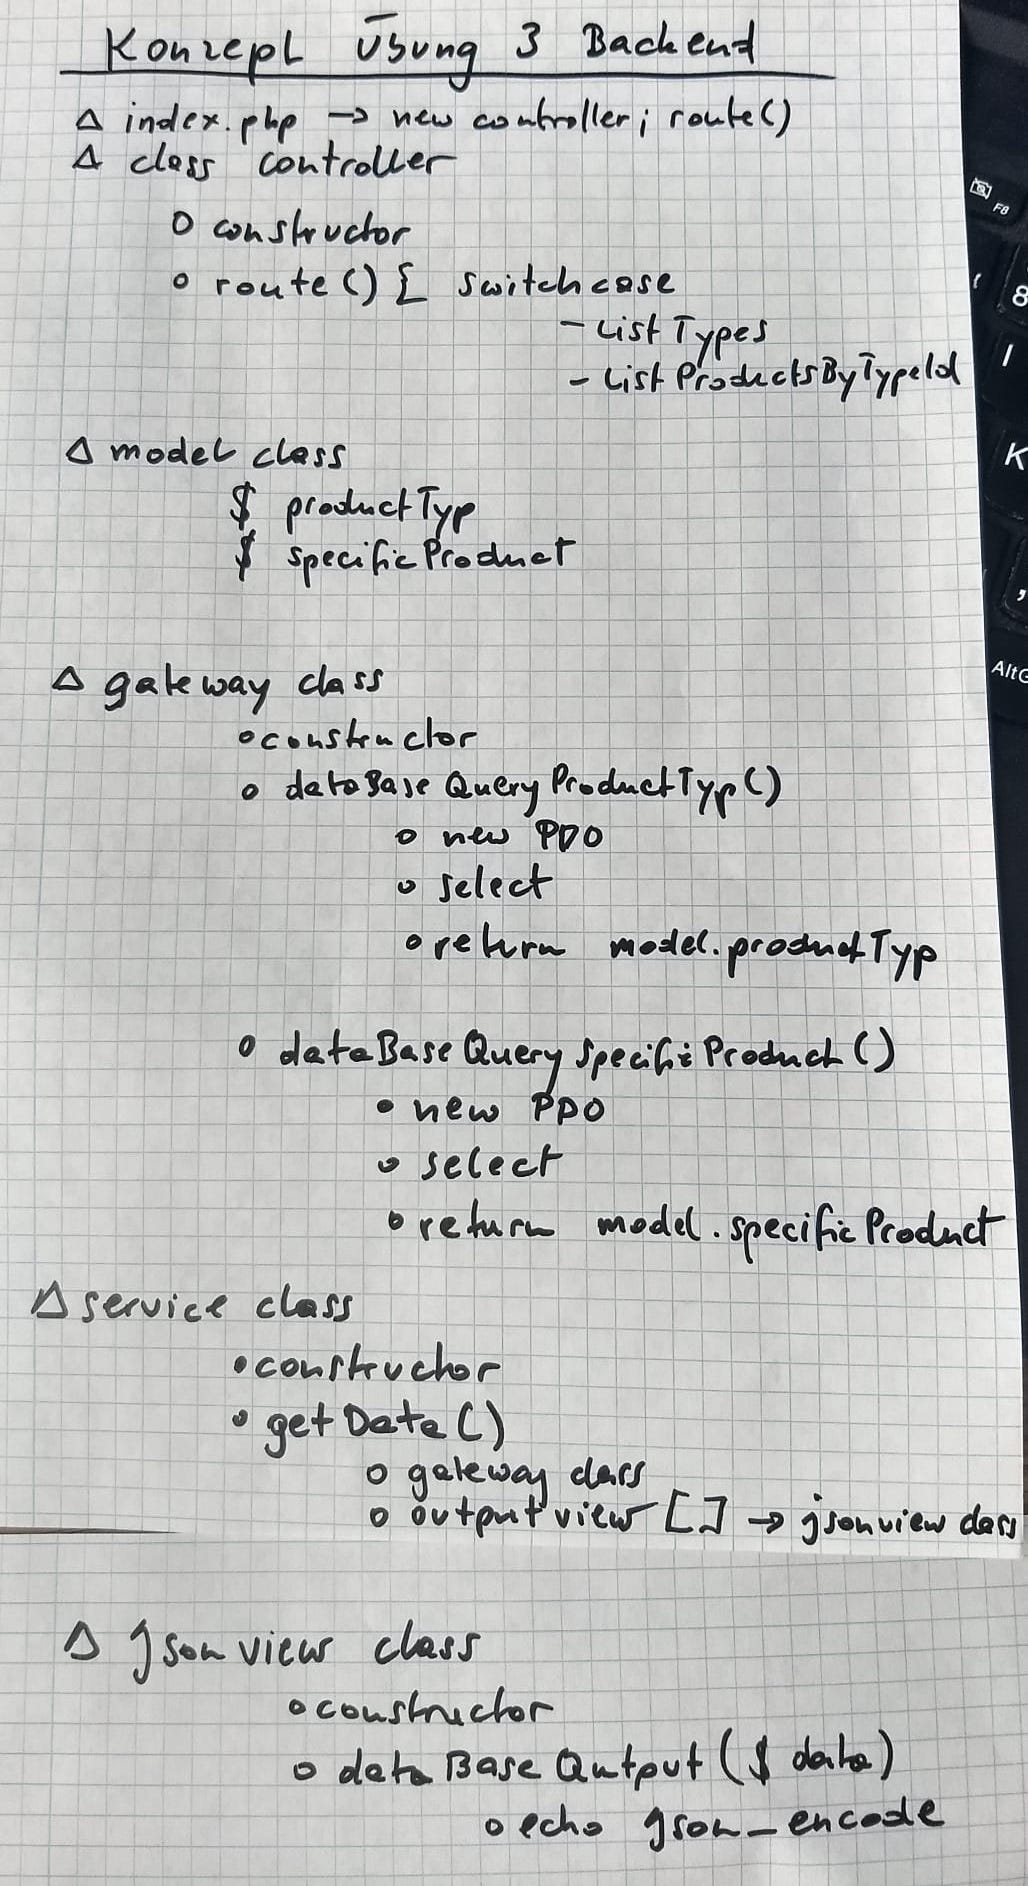 Konzept Übung 3 Backend
Δ index.php → new controller; route()
Δ class controller
o constructor
o route() { switch case
- List Types
- List ProductsByTypeId
Δ model class
$ productTyp
$ specificProduct
Δ gateway class
o constructor
o dataBaseQueryProductTyp()
o new PDO
o select
o return model.productTyp
o dataBaseQuerySpecificProduct()
o new PDO
o select
o return model.specificProduct
Δ service class
o constructor
o getData()
o gateway class
o output view [] → jsonview class
Δ json view class
o constructor
o dataBaseOutput($ data)
o echo json_encode
F8
8
I
K
,
AltG